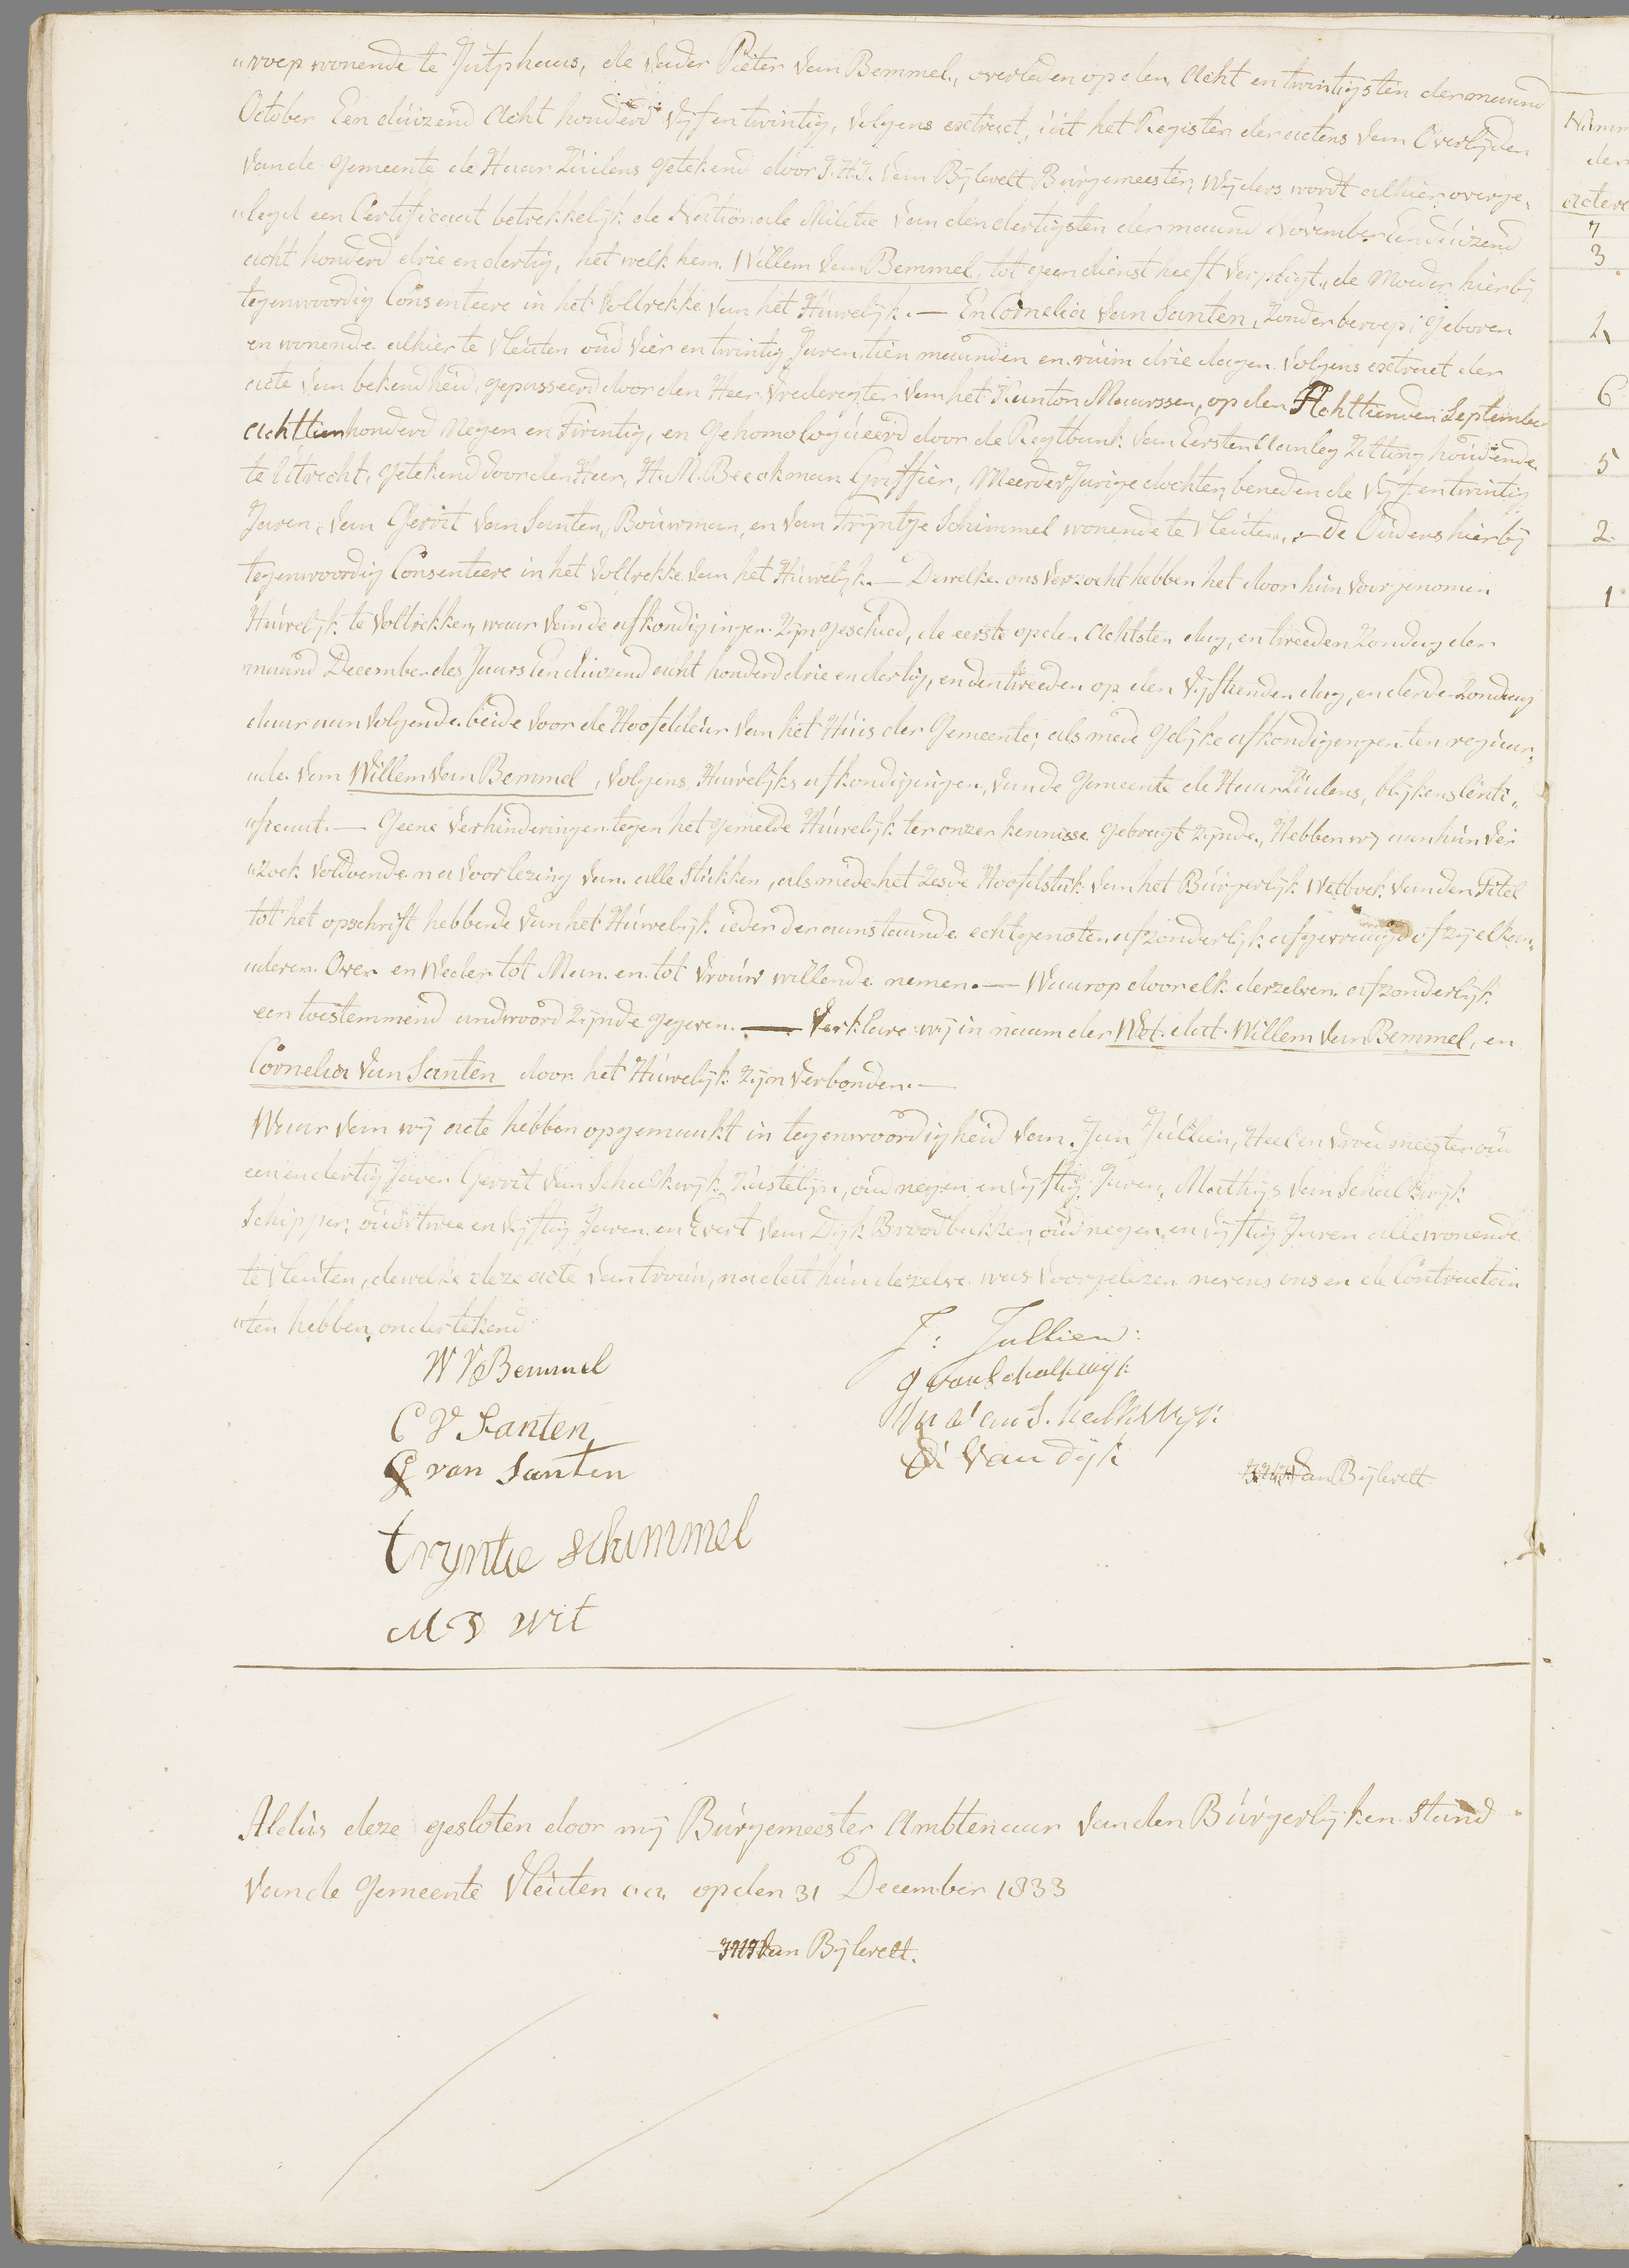 „roep wonende te Jutphaas, de Vader Pieter Van Bemmel, overleden op den Acht en twintigsten der maand
October Een duizend Acht honderd Vijf en twintig, Volgens extract, uit het Register der actens Van Overlijden
Van de gemeente de Haar Zuilens getekend door J. H. J. Van Bijlevelt Burgemeester, Wijders wordt alhier overge„
„legd een Certificaat betrekkelijk de Nationale Militie Van den dertigsten der maand November Een duizend
acht honderd drie en dertig, het welk hem Willem Van Bemmel, tot geen dienst heeft verpligt, de Moeder hierbij
tegenwoordig Consenteere in het Voltrekke Van het Huwelijk. — En Cornelia Van Santen, Zonder beroep, Geboren
en wonende alhier te Vleuten oud Vier en twintig Jaren, tien maanden en ruim drie dagen Volgens extract der
acte Van bekendheid, gepasseerd door den Heer Vrederegter Van het Kanton Maarssen, op den Achttienden September
Achttienhonderd Negen en Twintig, en Gehomologueerd door de Regtbank Van Eersten Aanleg Zitting houdende
te Utrecht, getekend door den Heer, H. M. Beeckman Griffier, Meerder Jarige dochter, beneden de Vijf en twintig
Jaren, Van Gerrit Van Santen, Bouwman, en Van Trijntje Schimmel wonende te Vleuten, — de Ouders hier bij
tegenwoordig Consenteere in het Voltrekke Van het Huwelijk. — Dewelke ons Verzocht hebben het door hun Voorgenomen
Huwelijk te Voltrekken, waar Van de afkondigingen Zijn geschied, de eerste op den Achtsten dag, en tweeden Zondag der
maand December des Jaars Een duizend acht honderd drie en dertig, en den tweeden op den Vijftienden dag, en derde Zondag
daar aan Volgende beide Voor de Hoofddeur Van het Huis der Gemeente, als mede Gelijke afkondigingen ten reguar„
„de Van Willem Van Bemmel, Volgens Huwelijks afkondigingen, Van de Gemeente de Haar Zuilens, blijkens Certi„
„ficaat. — Geene Verhinderingen tegen het gemelde Huwelijk ter onzer kennisse Gebragt Zijnde, Hebben wij aan hun Ver
„zoek Voldoende na Voorlezing Van alle Stukken, als mede het Zesde Hoofdstuk Van het Burgerlijk Wetboek Van den Titel
tot het opschrift hebbende Van het Huwelijk ieder der aanstaande echtgenoten afzonderlijk afgevraagd of zij elkan„
„deren Over en Weder tot Man en tot Vrouw willende nemen. — Waar op door elk derzelven afzonderlijk
een toestemmend andwoord Zijnde gegeven. — Verklare wij in naam der Wet dat Willem Van Bemmel, en
Cornelia Van Santen door het Huwelijk Zijn Verbonden. —
Waar Van wij acte hebben opgemaakt in tegenwoordigheid Van Jan Jullien, Heel en Vroedmeester oud
een en dertig Jaren Gerrit Van Schalkwijk Kastelijn, oud negen en Vijftig Jaren, Mathijs Van Schalkwijk
Schipper, oud twee en Vijftig Jaren, en Evert Van Dijk Broodbakker, oud negen en Vijftig Jaren alle wonende
te Vleuten, dewelke deze acte Van trouw, na dat hun dezelve was Voorgelezen nevens ons en de Contractan
„ten hebben ondertekend
W V Bemmel
J: Jullien:
g van Schalkwijk
C V Santen
M Van Schalkwijk
G van Santen
E Van Dijk
J.H.J. Van Bijlevelt
tryntie schimmel
M D Wit
Aldus deze gesloten door mij Burgemeester Ambtenaar Van den Burgerlijken Stand
Van de Gemeente Vleuten op den 31 December 1833
J.H.J. Van Bijlevelt.
Numm
der
actens
7
3
6
5
2
1